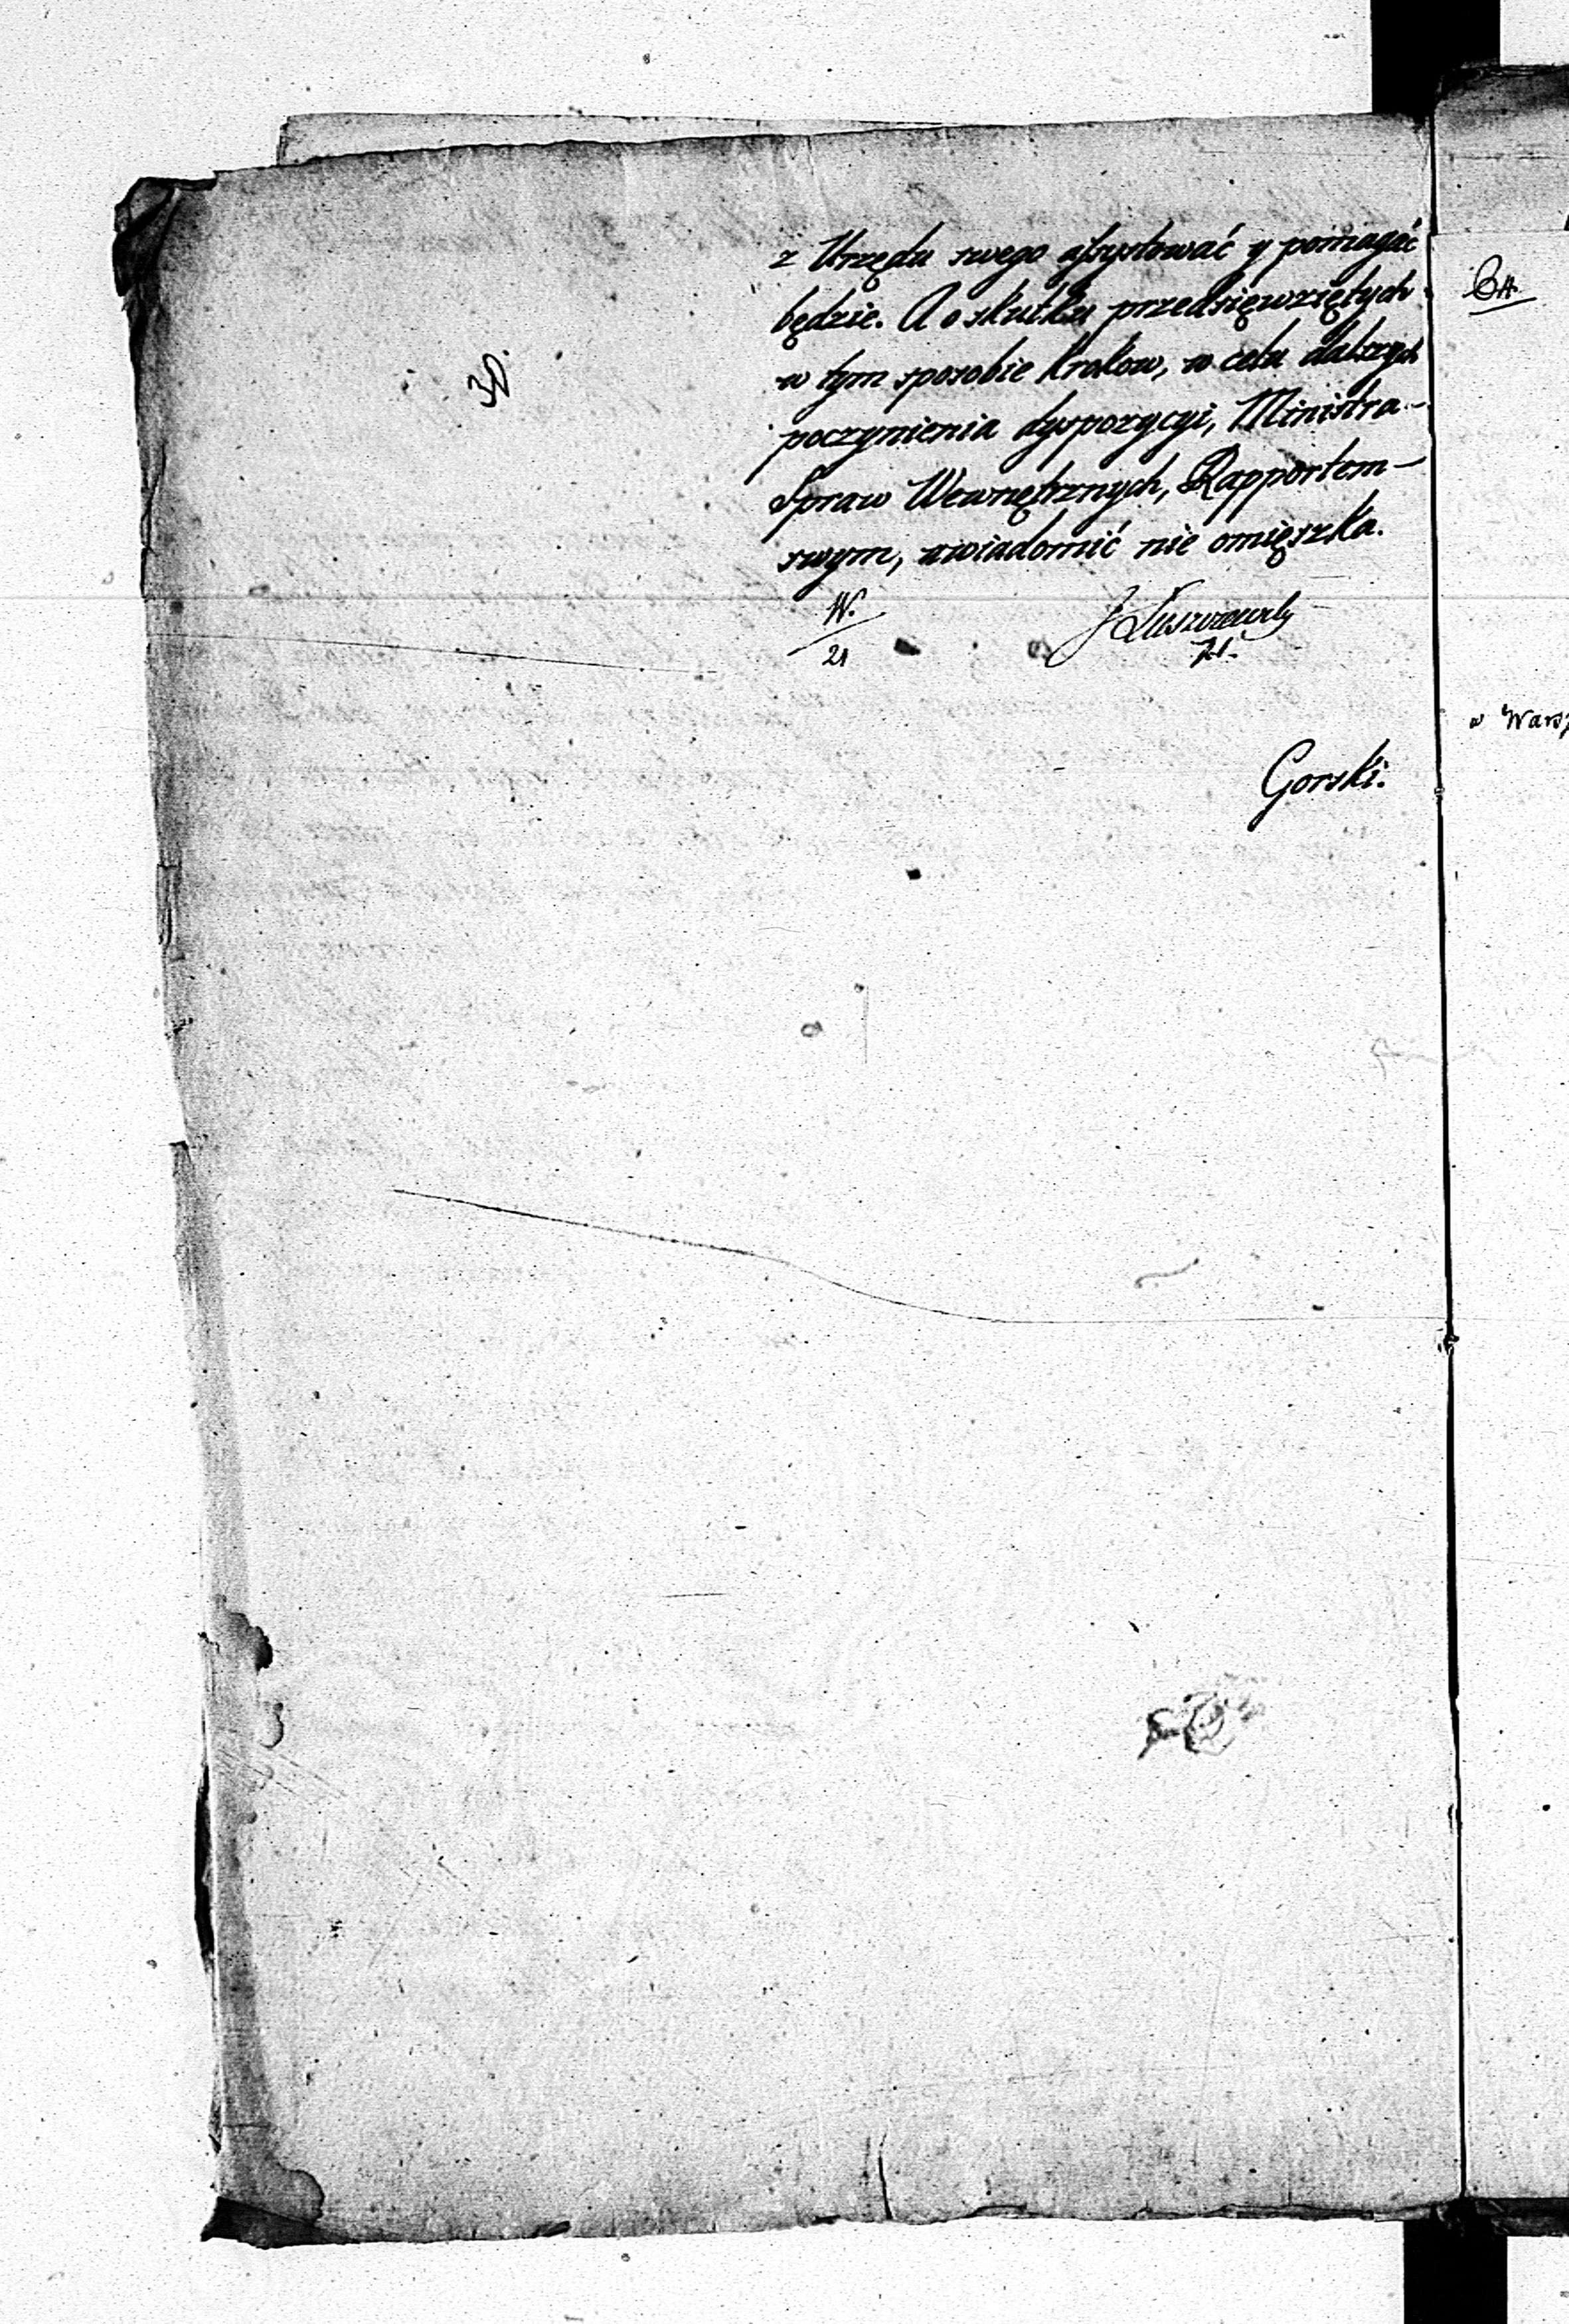 z Urzędu swego assystować y pomagać
będzie. A o skutku przedsięwziętych
w tym sposobie krokow, w celu dalszych
poczynienia dyspozycyi, Ministra
Spraw Wewnętrznych, Rapportem
swym, uwiadomić nie omięszka.
W.
21
J Łuszczewsky
Gorski.
w Warsz